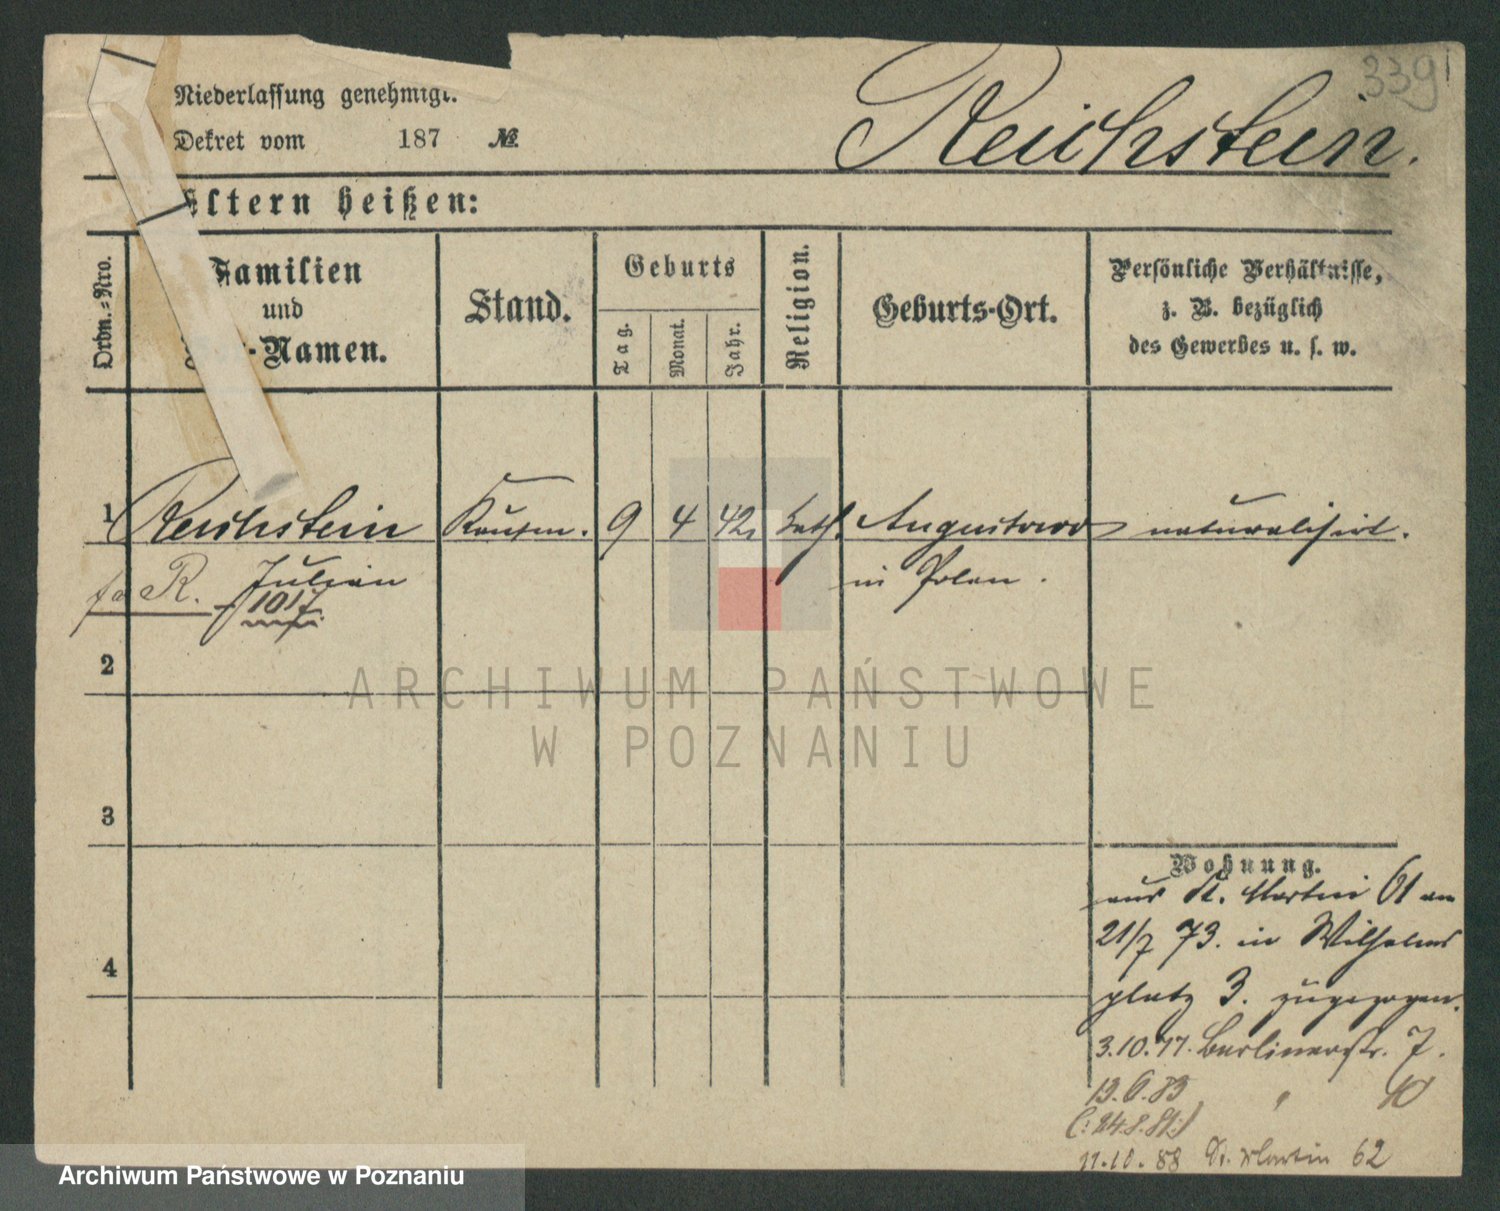 339
Niederlassung genehmigt.
Dekret vom 187 №
Reichstein.
Eltern heißen:
Ordn.-Nro.
Familien
und
-Namen.
Stand.
Geburts
Tag.
Monat.
Jahr.
Religion.
Geburts-Ort.
Persönliche Verhältnisse,
z. B. bezüglich
des Gewerbes u. s. w.
1 Reichstein Kaufm. 9 4 42 kath. Augustowo naturalisirt.
R. Julian in Polen.
1017
2
3
4
Wohnung.
aus St. Martin 61 am
21/7 73. in Wilhelms
platz 3. zugezogen.
3.10.77. Berlinerstr. 7.
13.6.83 " 10
24.8.
11.10.88 St. Martin 62
ARCHIWUM PAŃSTWOWE
W POZNANIU
Archiwum Państwowe w Poznaniu